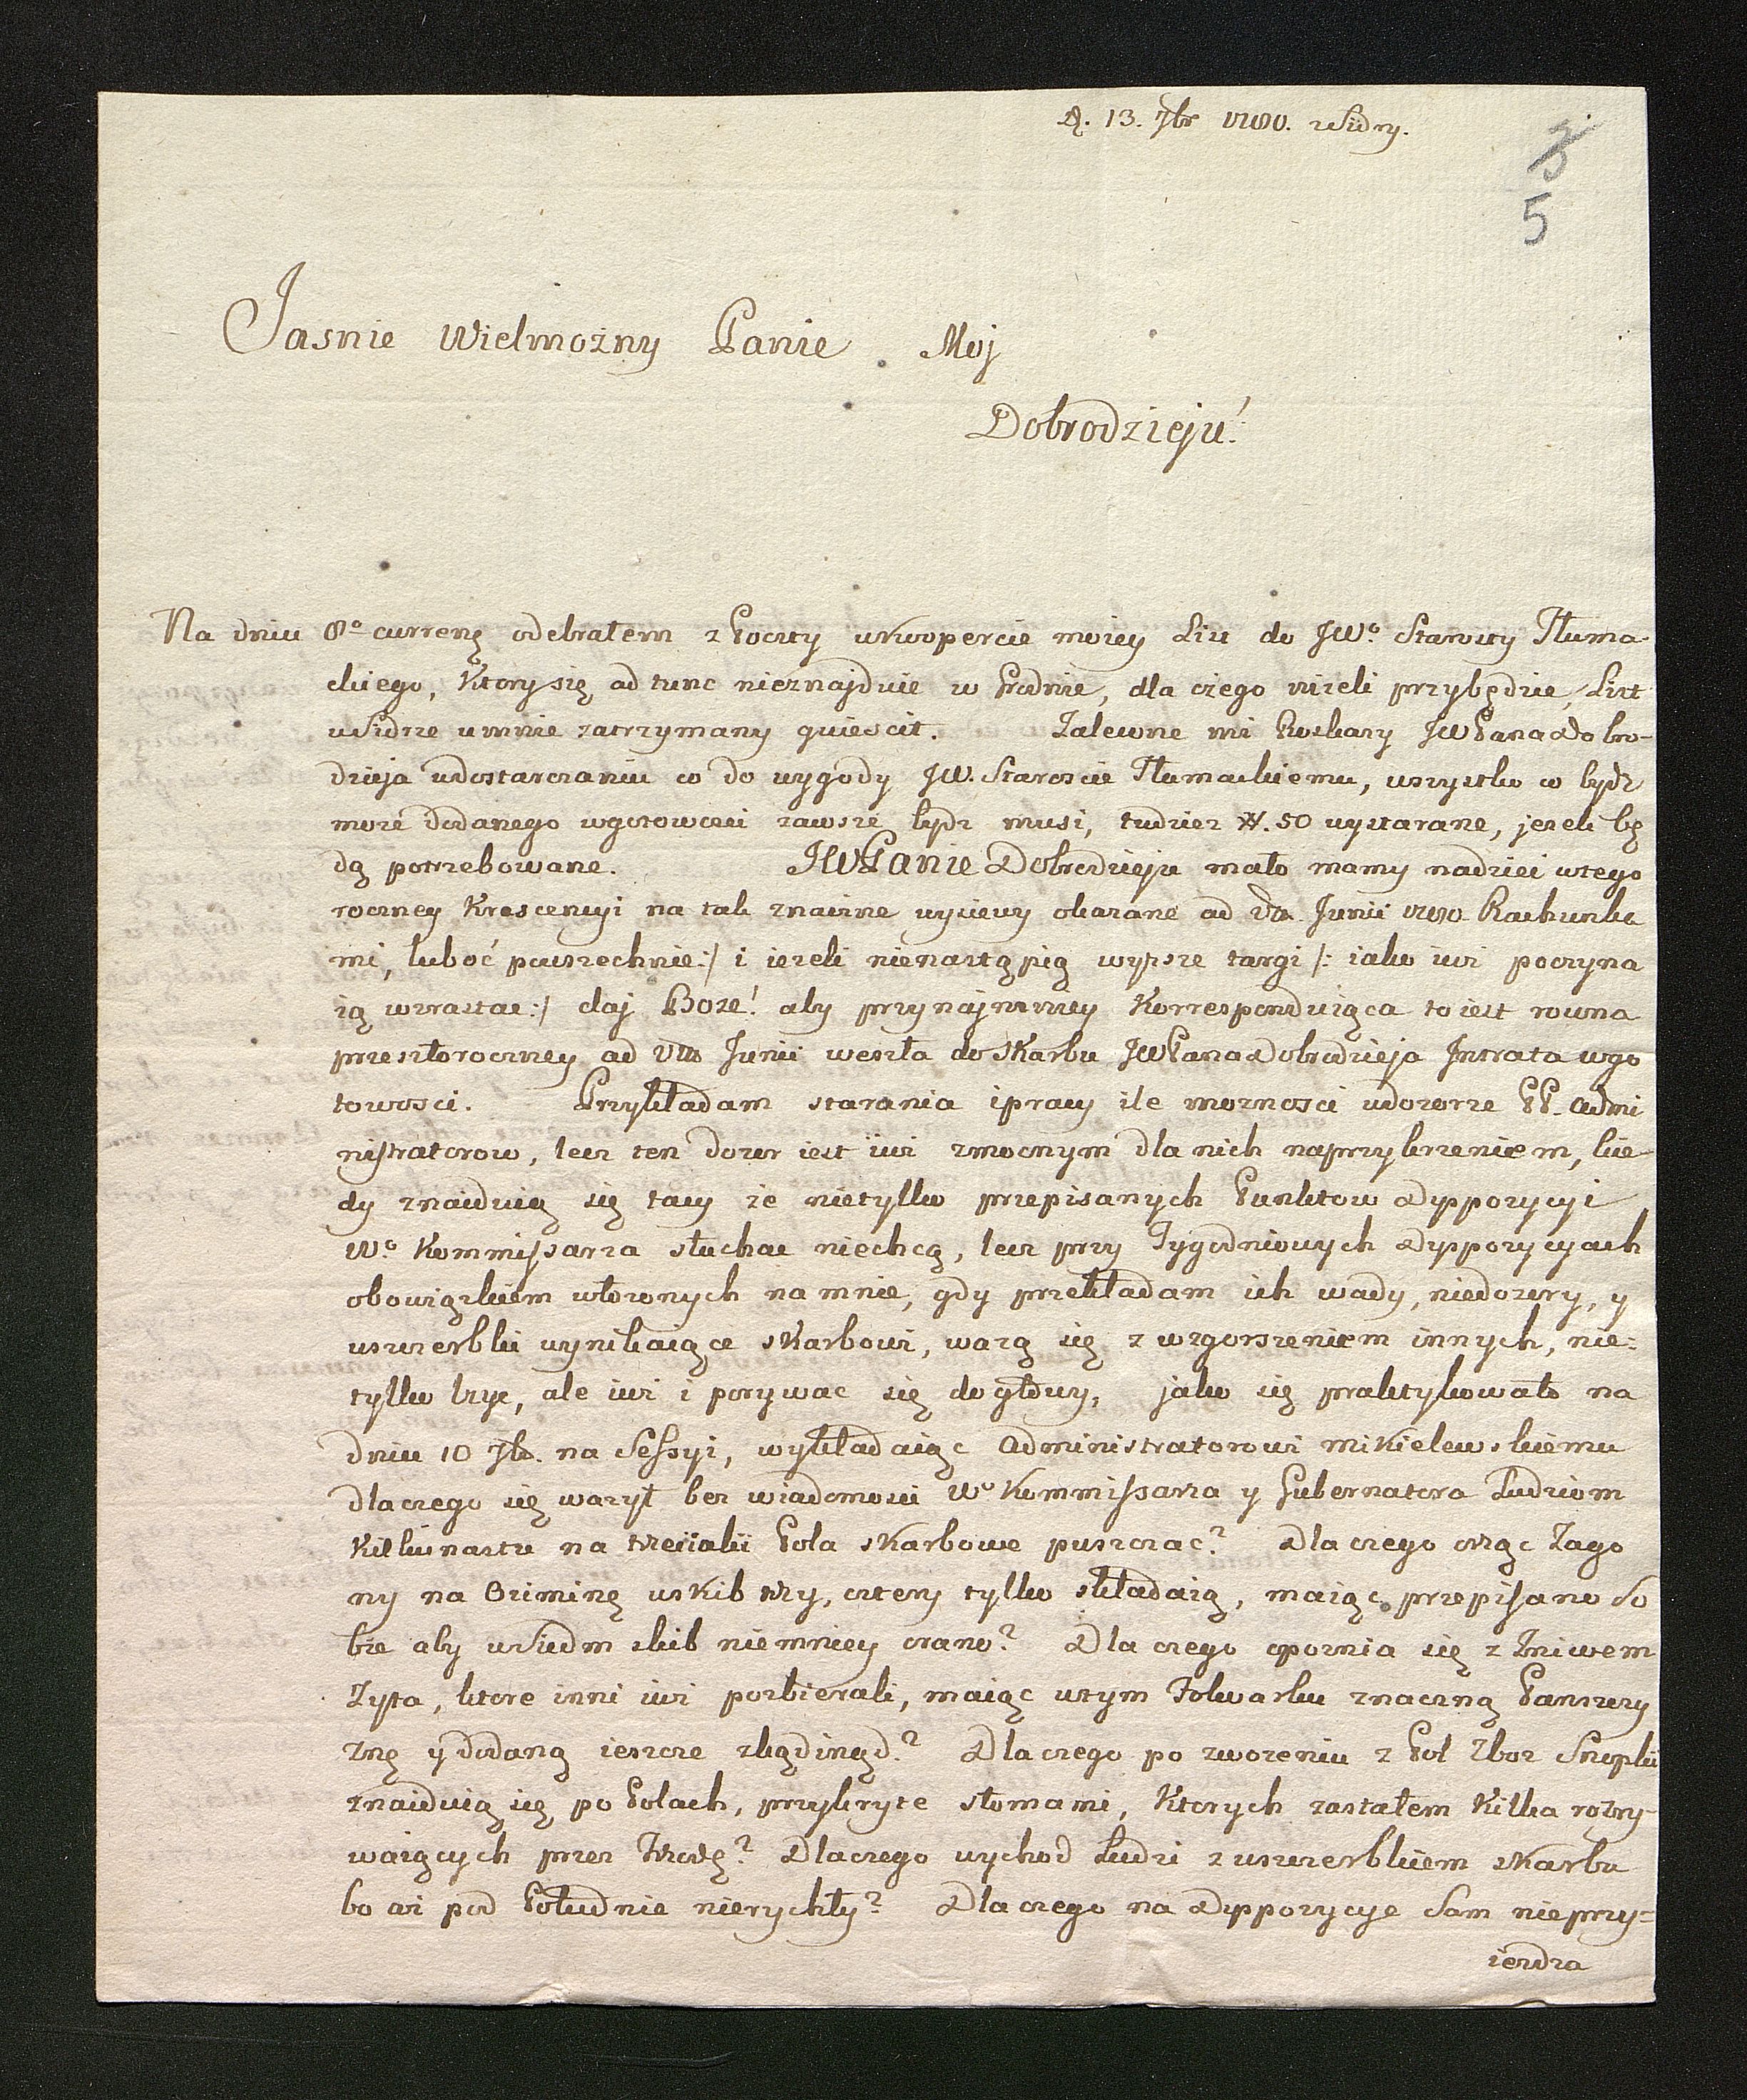 D. 13. 7br 1780. z Sidry.
5
Jasnie Wielmożny Panie Moj
Dobrodzieju!
Na dniu 8º currenę odebrałem z Poczty wkopercie moiey List do JWº Starosty Tłuma
ckiego, ktory się ad tunc nieznajduie w Grodnie, dla czego niżeli przybędzie, List
wSidrze u mnie zatrzymany quiescit. Zalewne mi Rozkazy JWPana Dobro-
dzieja wdostarczaniu co do wygody JW. Staroscie Tłumackiemu, wszystko co bydz
może dodanego wgotowosci zawsze bydz musi, tudziez #. 50 wystarane, jezeli bę
dą potrzebowane. JWPanie Dobrodzieju mało mamy nadziei wtego
roczney Krescencyi na tak znaczne wysiewy okazane ad Junii Rachunka
mi, luboć powszechnie :/ i iezeli nienastąpią wyzsze targi /: iako iuż poczyna
ią wzrastac :/ daj Boze! aby przynajmniey Korrespondviąca to iest rowna
przeszłoroczney ad Junii weszła do Skarbu JWPana Dobrodzieja Intrata wgo
towosci. Przykładam starania i pracy ile moznosci wdozorze PP. Admi
nistratorow, lecz ten dozor iest iuż zmocnym dla nich naprzykrzeniem, kie-
dy znaiduią się tacy że nietylko przepisanych Punktow Dyspozycyi
Wº Kommissarza słuchac niechcą, lecz przy Tygodniowych Dyspozycyach
obowiązkiem włozonych na mnie, gdy przekładam ich wady, niedozory, y
uszczerbki wynikaiące Skarbowi, ważą się z wzgorszeniem innych, nie-
tylko lżyc, ale iuż i porywac się do głowy, jako się praktykowało na
dniu 10 7br. na Sessyi, wykładaiąc Administratorowi Mikielewskiemu
dlaczego się ważył bez wiadomosci Wº Kommissarza y Gubernatora Ludziom
Kilkunastu na trzeciaki Pola skarbowe puszczac? Dla czego orząc Zago
ny na Oziminę wskib trzy, cztery tylko składaią, maiąc przepisano So
bie aby wSiedm skib niemniey orano? Dla czego opoznia się z Zniwem
Zyta, ktore inni iuż pozbierali, maiąc wtym Folwarku znaczną Panszczy
znę y dodaną ieszcze zkądinąd? Dla czego po zwozeniu z Pol Zboz Snopki
znaiduią się po Polach, przykryte słomami, Ktorych zastałem Kilka
waiących przez Trzodę? Dlaczego wychod Ludzi z uszczerbkiem Skarbu
bo aż pod Południe nierychły? Dla czego na Dyspozycye Sam nieprzy=
iezdza